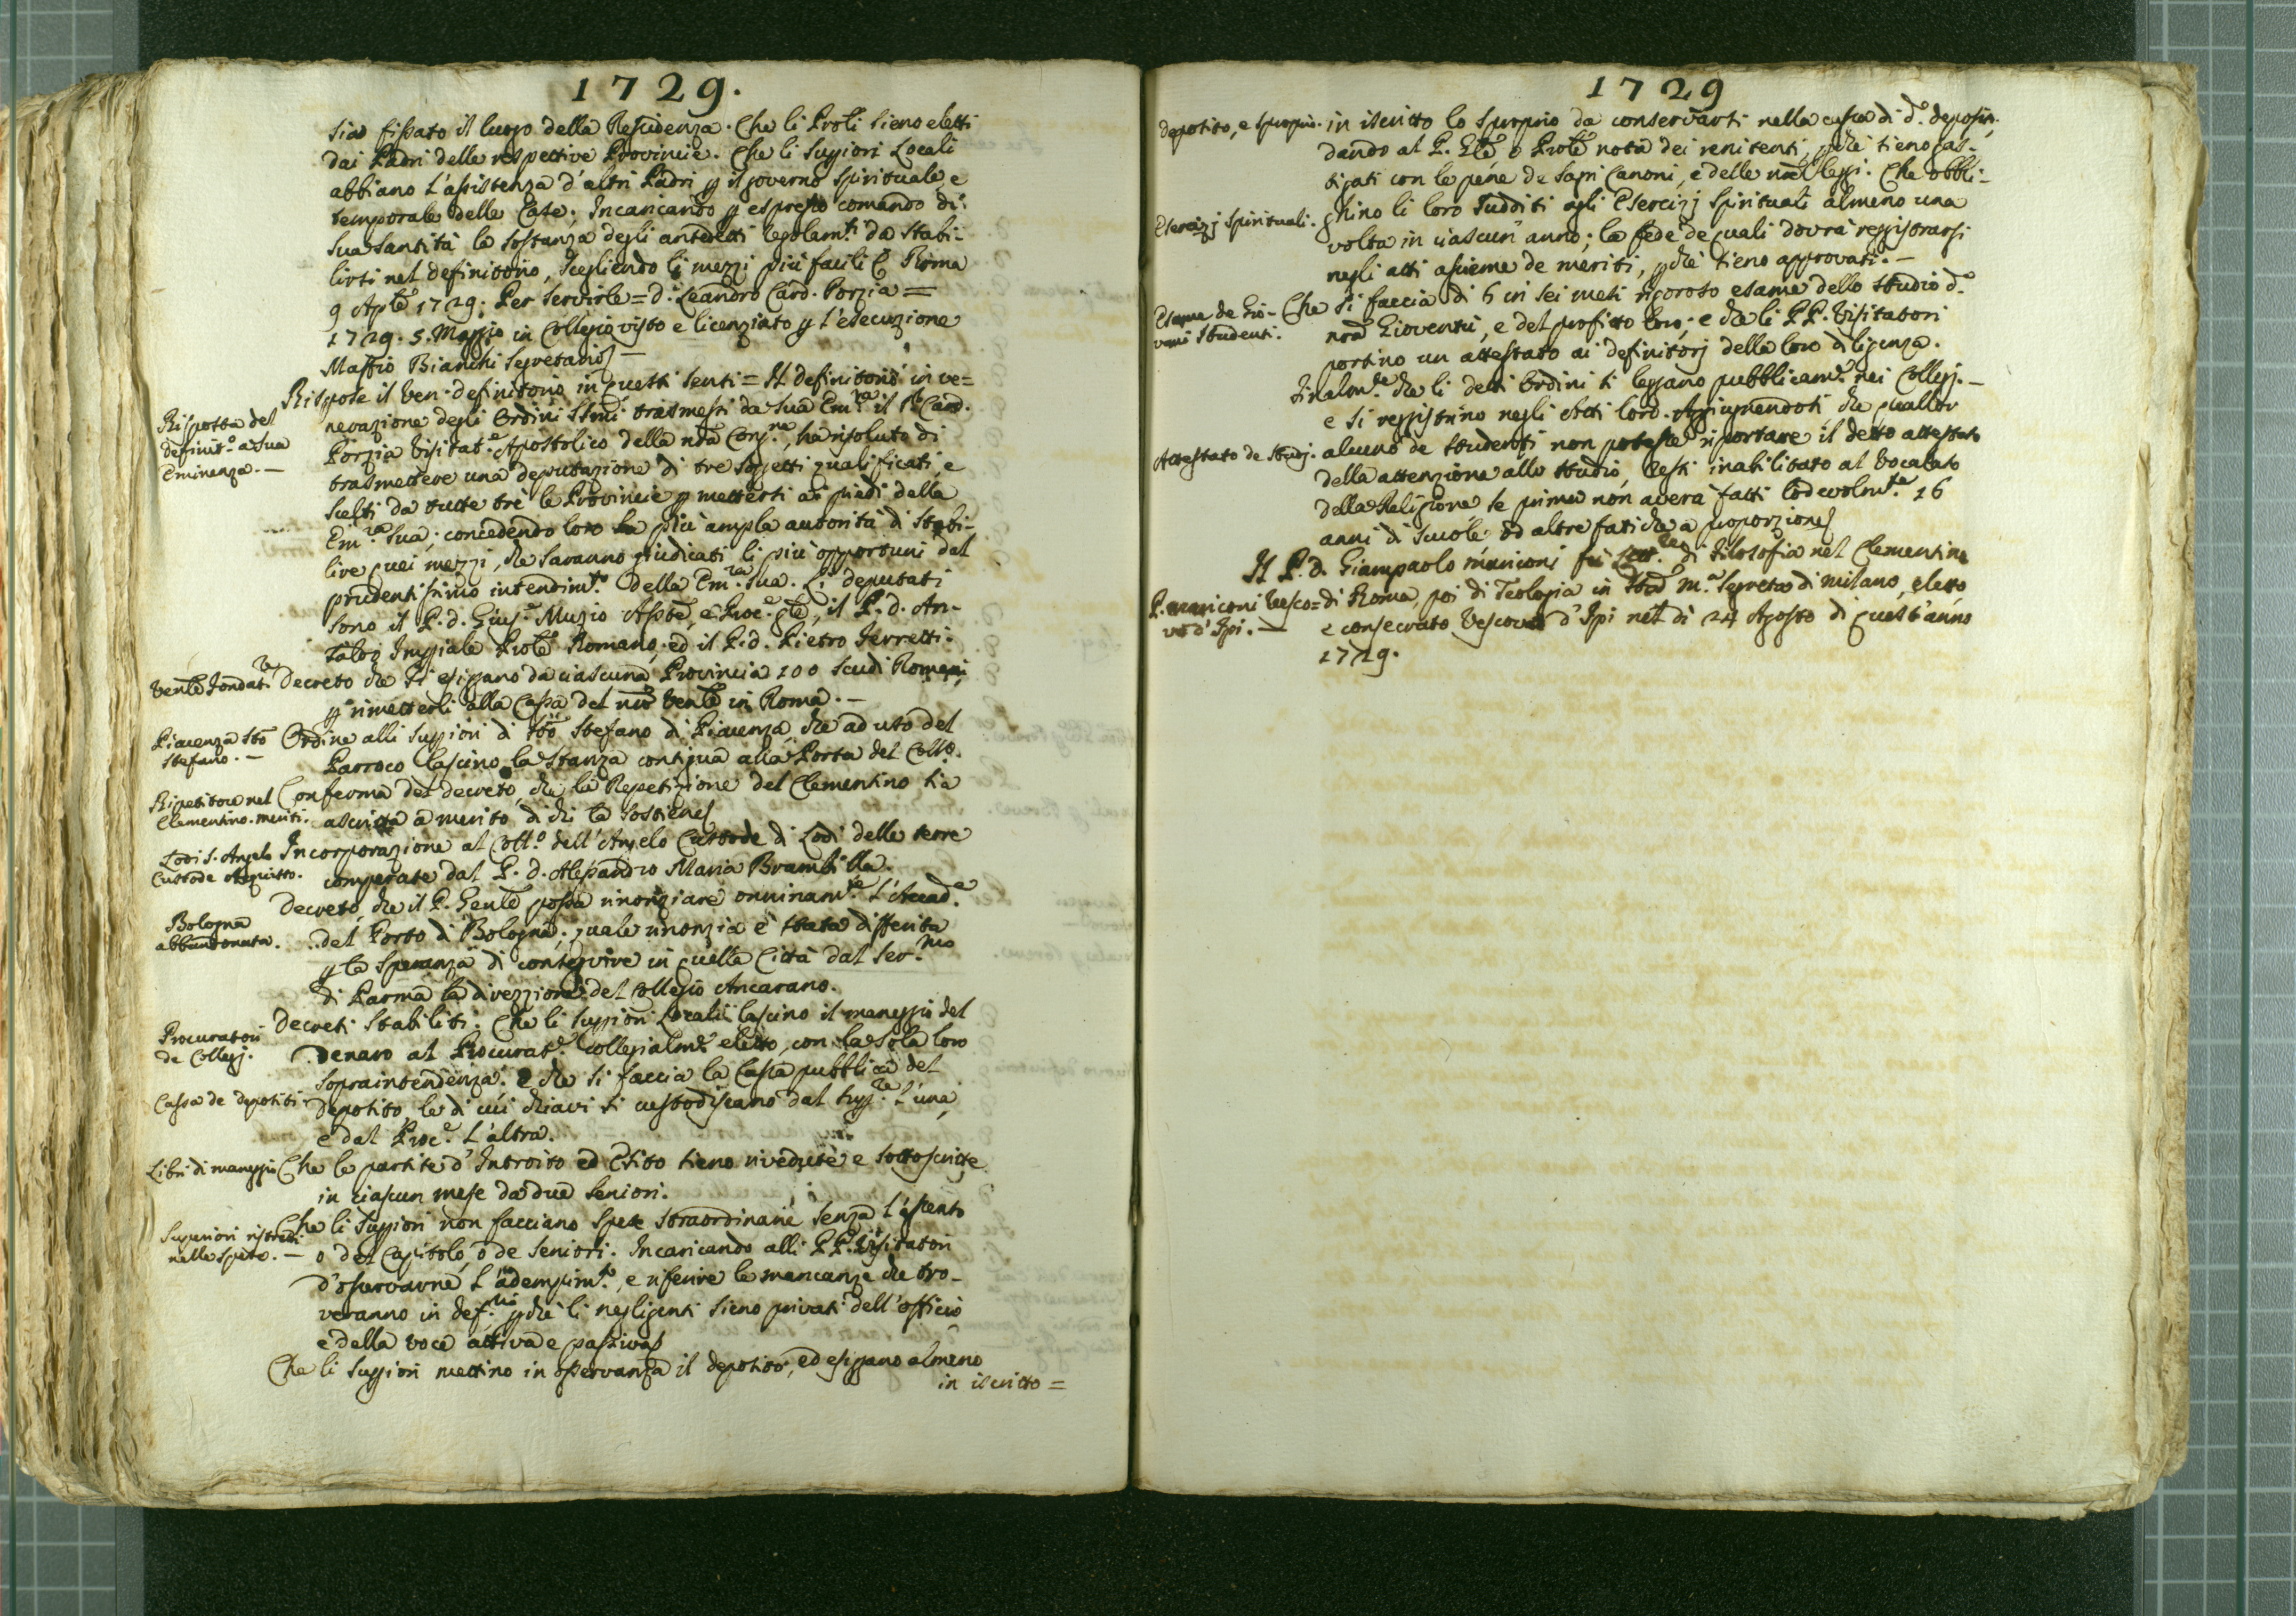 1729.
sia fissato il luogo della Residenza. Che li Prõli sieno eletti
dai Padri delle respettive Provincie. Che li Suppiori Locali
abbiano l'assistenza d'altri Padri p il governo spirituale, e
temporale delle Case; Incaricando p espresso comando di
Sua Santità la sostanza degli antedetti Regolam.ti da stabi-
lirsi nel definitorio, scegliendo li mezzi più facili &c Roma
9 Aple 1729. Per servirle = d. Leandro Card. Porzia =
1729. 5. Maggio in Collegio visto e licenziato p l'esecuzione
Maffio Bianchi Segretario
Risposta del
definit.o a Sua
Eminenza. —
Rispose il Ven. definitorio in questi sensi = Il definitorio in ve=
nerazione degli Ordini SSmi trasmessi da Sua Em.za il Sr Card.
Porzia Visitat.e Apostolico della nrã Cong.ne, ha risoluto di
trasmettere una deputazione di tre soggetti qualificati, e
scelti da tutte trè le Provincie p mettersi ai piedi della
Em.za Sua; concedendo loro la più ampla autorità di stabi-
lire quei mezzi, che saranno giudicati li più opportuni dal
prudentissimo intendim.to della Em.za Sua. Li deputati
sono il P. d. Gius.e Muzio Assẽ, e Proc.e Gle, il P. d. An-
Imppiale Prõle Romano, ed il P. d. Pietro Ferretti.
Venle Fondat.re
decreto che si esigano da ciascuna Provincia 100 scudi Romani,
p rimetterli alla Cassa del nrõ Venle in Roma. —
Piacenza Sto
Stefano. —
Ordine alli Suppiori di Sto Stefano di Piacenza, che ad uso del
Parroco lascino la stanza contigua alla Porta del Coll.o.
Ripetitore nel
Clementino. meriti.
Conferma del decreto, che la Repetizione del Clementino sia
ascritta a merito di chi la sostiene
Lodi S. Angelo
Custode Acquisto.
Incorporazione al Coll.o dell'Angelo Custode di Lodi delle terre
comperate dal P. d. Alessandro Maria Brambilla.
Bologna
abbandonata.
decreto, che il P. Genle possa rinonziare onninam.te l'Accad.a
del Porto di Bologna; quale rinonzia è stata differita
p la speranza di conseguire in quella Città dal Ser.mo
di Parma la direzzione del Collegio Ancarano.
Procuratori
de Collegj.
decreti stabiliti: Che li Suppiori Locali lascino il maneggio del
denaro al Procurat.e collegialm.e eletto, con la sola loro
sopraintendenza. E che si faccia la Cassa pubblica del
Cassa de depositi
deposito, le di cui chiavi si custodiscano dal Supp.re l'una,
e dal Proc.e l'altra.
Libri di maneggio
Che le partite d'Introito ed Esito sieno rivedute e sottoscritte
in ciascun mese da due Seniori.
Superiori ristretti
nelle spese. —
Che li Suppiori non facciano spese straordinarie senza l'assento
o del Capitolo, o de Seniori. Incaricando alli PP. Visitatori
d'osservarne l'adempim.to, e riferire le mancanze che tro-
veranno in def.rio, pchè li negligenti sieno privati dell'officio,
e della voce attiva e passiva
Che li Suppiori mettino in osservanza il deposito, ed esiggano almeno
in iscritto =
1729
deposito, e sproprio.
in iscritto lo sproprio da conservarsi nella cassa di d.o deposito.
dando al P. Gle o Prõle nota dei renitenti, pchè sieno gas-
tigati con le pene de Sagri Canoni, e delle nrẽ leggi. Che obbli-
Esercizj Spirituali.
ghino li loro sudditi agli Esercizj Spirituali almeno una
volta in ciascun anno; la fede de quali dovrà reggistrarsi
negli atti assieme de meriti, pchè sieno approvati. —
Esame de Gio-
vani Studenti.
Che si faccia di 6 in sei mesi rigoroso esame dello studio d.a
nrã Gioventù, e del profitto loro; e che li PP. Visitatori
portino un attestato ai definitorj della loro diligenza.
Finalm.te che li detti Ordini si leggano pubblicam.e nei Collegj. —
e si reggistrino negli Atti loro. Aggiugnendosi che quallor
Attestato de Studj.
alcuno de studenti non potesse riportare il detto attestato
della attenzione allo studio, resti inabilitato al Vocalato
della Religione, se prima non averà fatti lodevolm.te 16
anni di scuole od altre fatiche a proporzione
P. manriconi Vesco=
vo d'Ipi. —
Il P. d. Giampaolo manriconi fù Lett.re di Filosofia nel Clementino
di Roma, poi di Teologia in Sta M.a Segreta di Milano, eletto
e consecrato Vescovo d'Ipi nel dì 24 Agosto di quest'anno
1729.